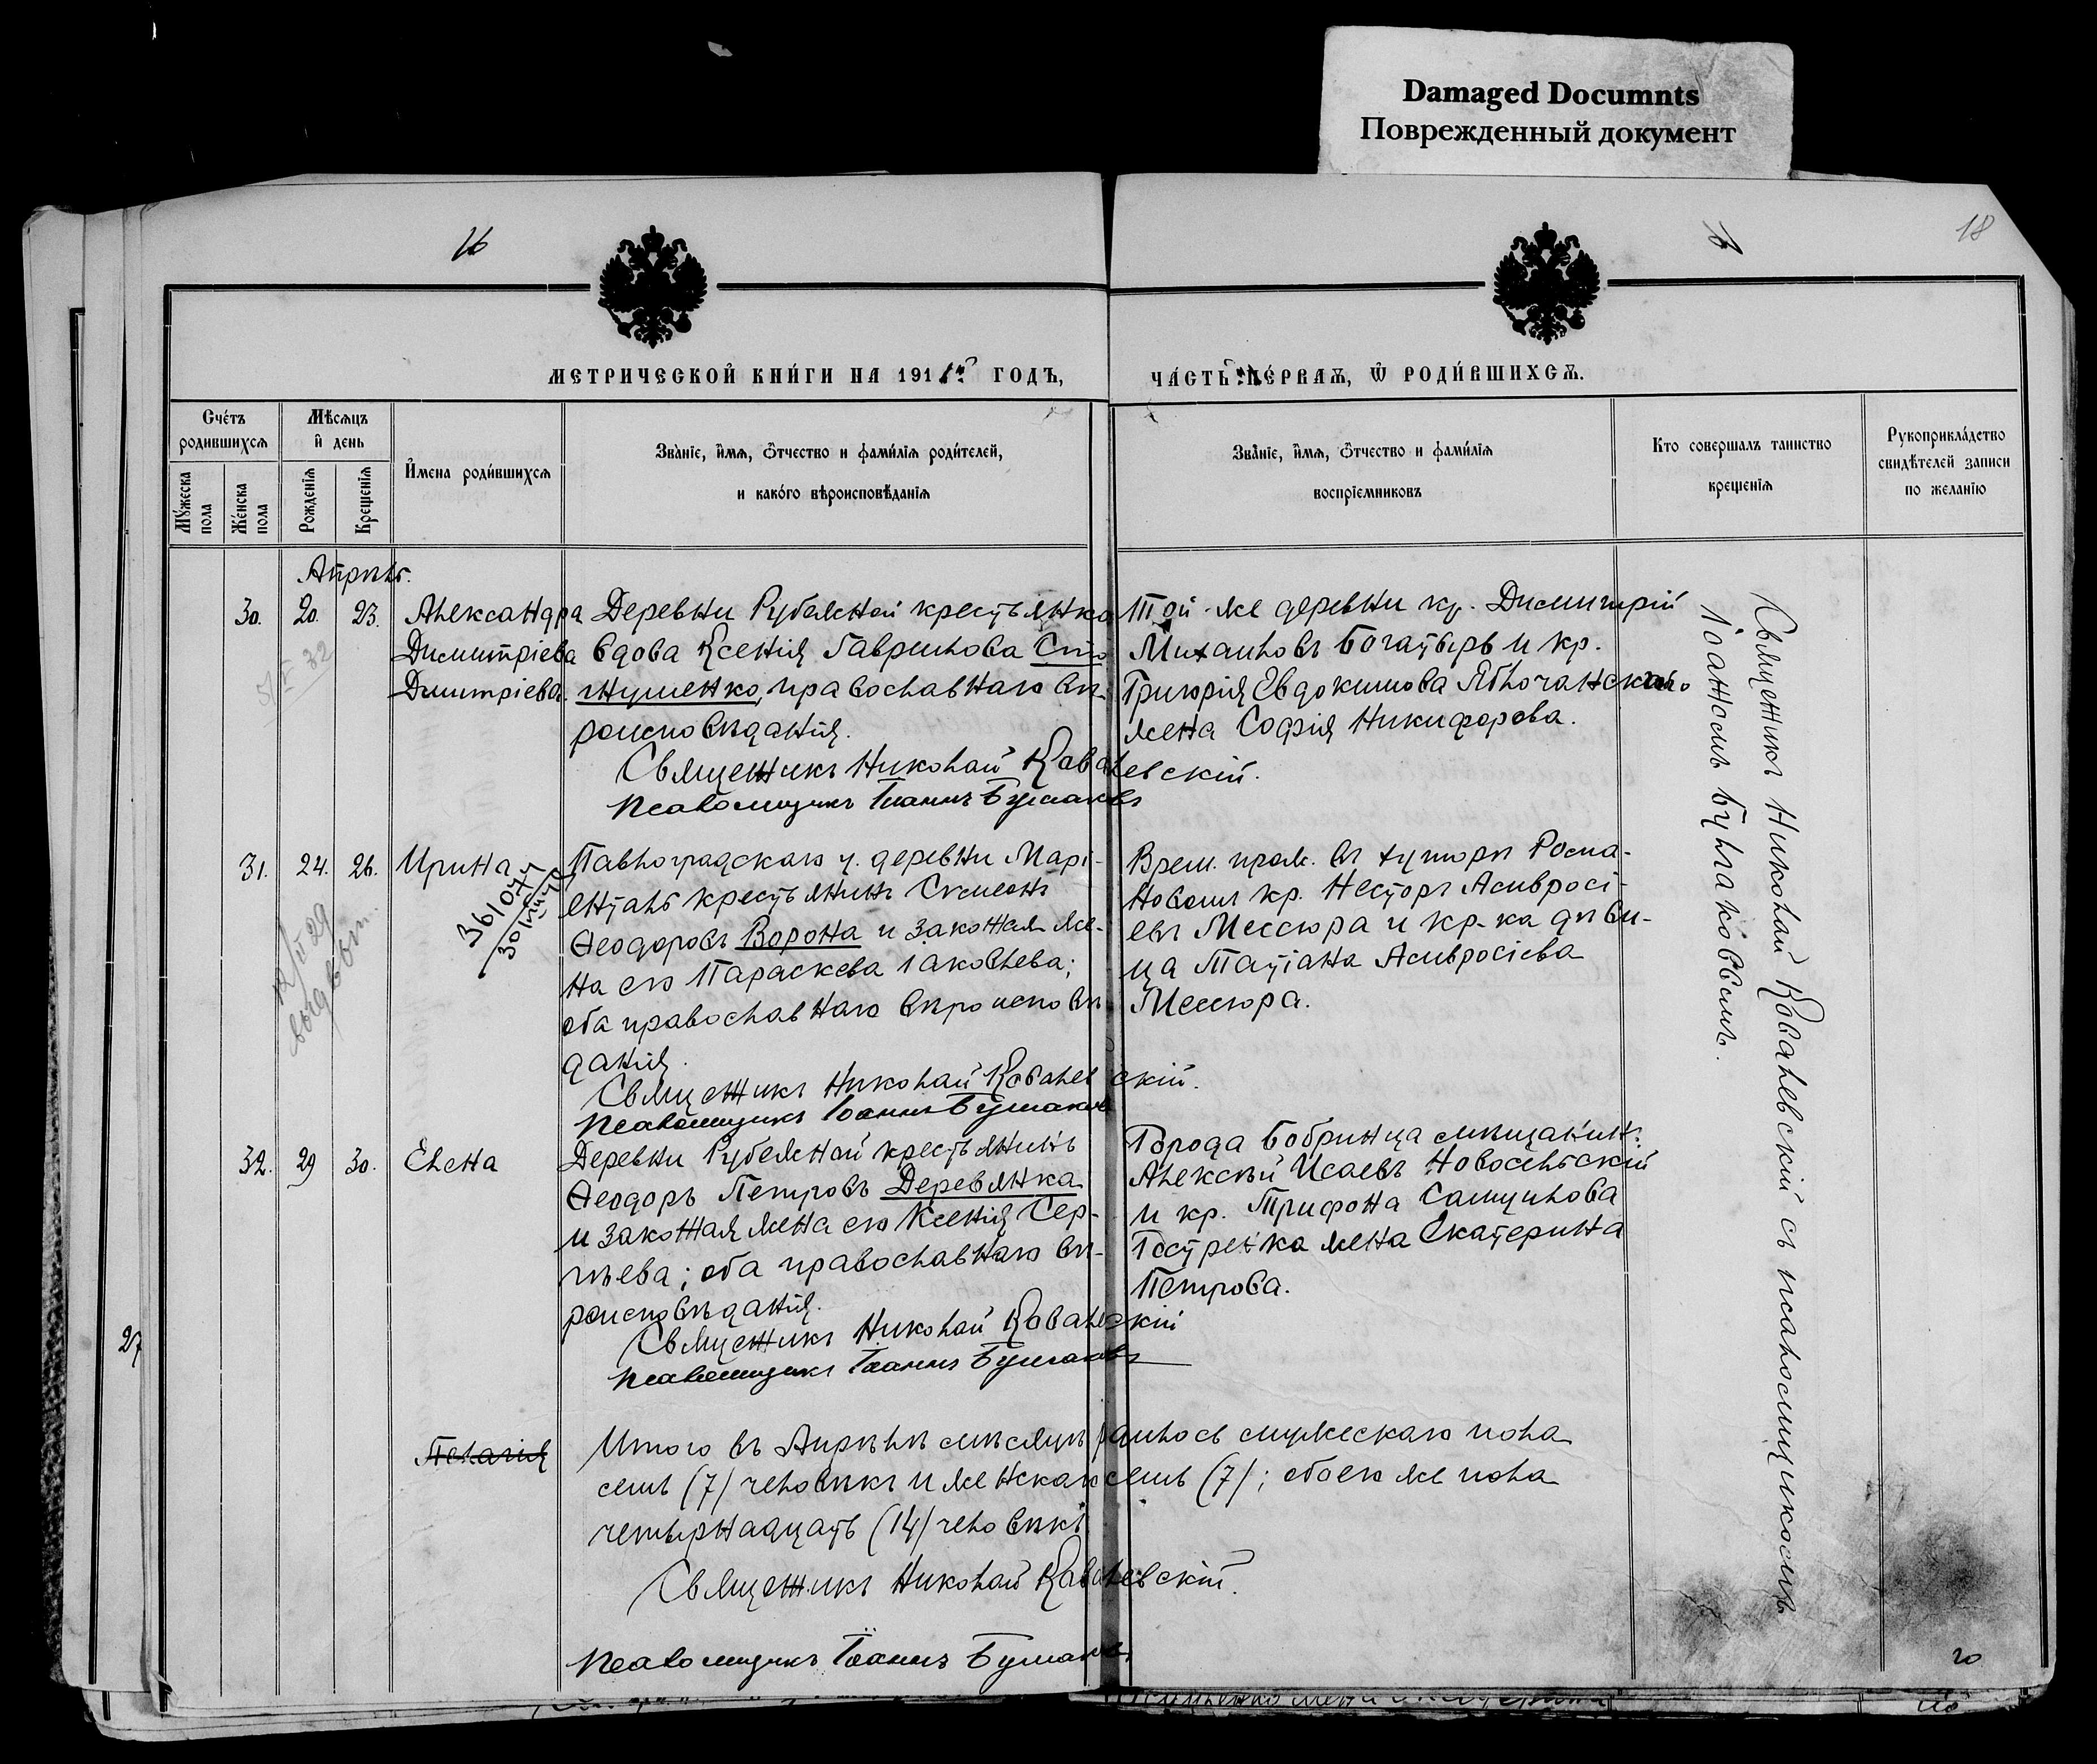 Damaged Documnts
Поврежденный документ
18
МЕТРИЧЕСКОЙ КНИ́ГИ НА 191 ГОДЪ,
ЧА́СТЬ ПЕ́РВАѦ, Ѿ РОДИ́ВШИХСѦ.
Счетъ родившихсѧ
Мꙋ́жеска пола
Же́нска пола
Мѣсѧцъ и день
Рожденїѧ
Крещенїѧ
Имена роди́вшихсѧ
Зва́нїе, и́мѧ, ѻ́тчество и фами́лїѧ роди́телей,
и како́го вѣроисповѣ́данїѧ
Зва́нїе, и́мѧ, ѻ́тчество и фами́лїѧ
воспрїемниковъ
Кто совершалъ таинство
крещенїѧ
Рукоприкла́дство
свидѣтелей записи
по желанїю
Апрѣль.
30. 20. 23.
Александра
Димитріева
Димитріева.
Деревни Рубежной крестьянка
вдова Ксенія Гаврилова Сто
гнушенко, православнаго вѣ-
роисповѣданія.
Священникъ Николай Ковалевскій.
Псаломщикъ Іоаннъ Булаковъ
Той-же деревни кр. Димитрій
Михаиловъ Богатырь и кр.
Григорія Евдокимова Яблочанскаго
жена Софія Никифорова.
31. 24. 26.
Ирина
361044
Павлоградскаго у. деревни Марі-
енталь крестьянинъ Симеонъ
Ѳеодоровъ Ворона и законная же-
на его Параскева Іаковлева;
оба православнаго вѣроисповѣ-
данія.
Священникъ Николай Ковалевскій.
Псаломщикъ Іоаннъ Булаковъ
Врем. прож. въ хуторѣ Рома-
новомъ кр. Несторъ Амвросі-
евъ Мессюра и кр-ка дѣви-
ца Татіана Амвросіева
Мессюра.
32. 29 30.
Елена
Деревни Рубежной крестьянинъ
Ѳеодоръ Петровъ Деревянка
и законная жена его Ксенія Сер-
гѣева; оба православнаго вѣ-
роисповѣданія.
Священникъ Николай Ковалевскій
Псаломщикъ Іоаннъ Булаковъ
Города Бобринца мѣщанинъ
Алексѣй Исаевъ Новосельскій
и кр. Трифона Самуилова
Гостренка жена Екатерина
Петрова.
Священникъ Николай Ковалевскій съ псаломщикомъ
Іоанномъ Булаковымъ.
Пелагія
Итого въ Апрѣлѣ мѣсяцѣ родилось мужескаго пола
семь (7) человѣкъ и женскаго семь (7); обоего же пола
четырнадцать (14) человѣкъ
Священникъ Николай Ковалевскій.
Псаломщикъ Іоаннъ Булаковъ
27
20